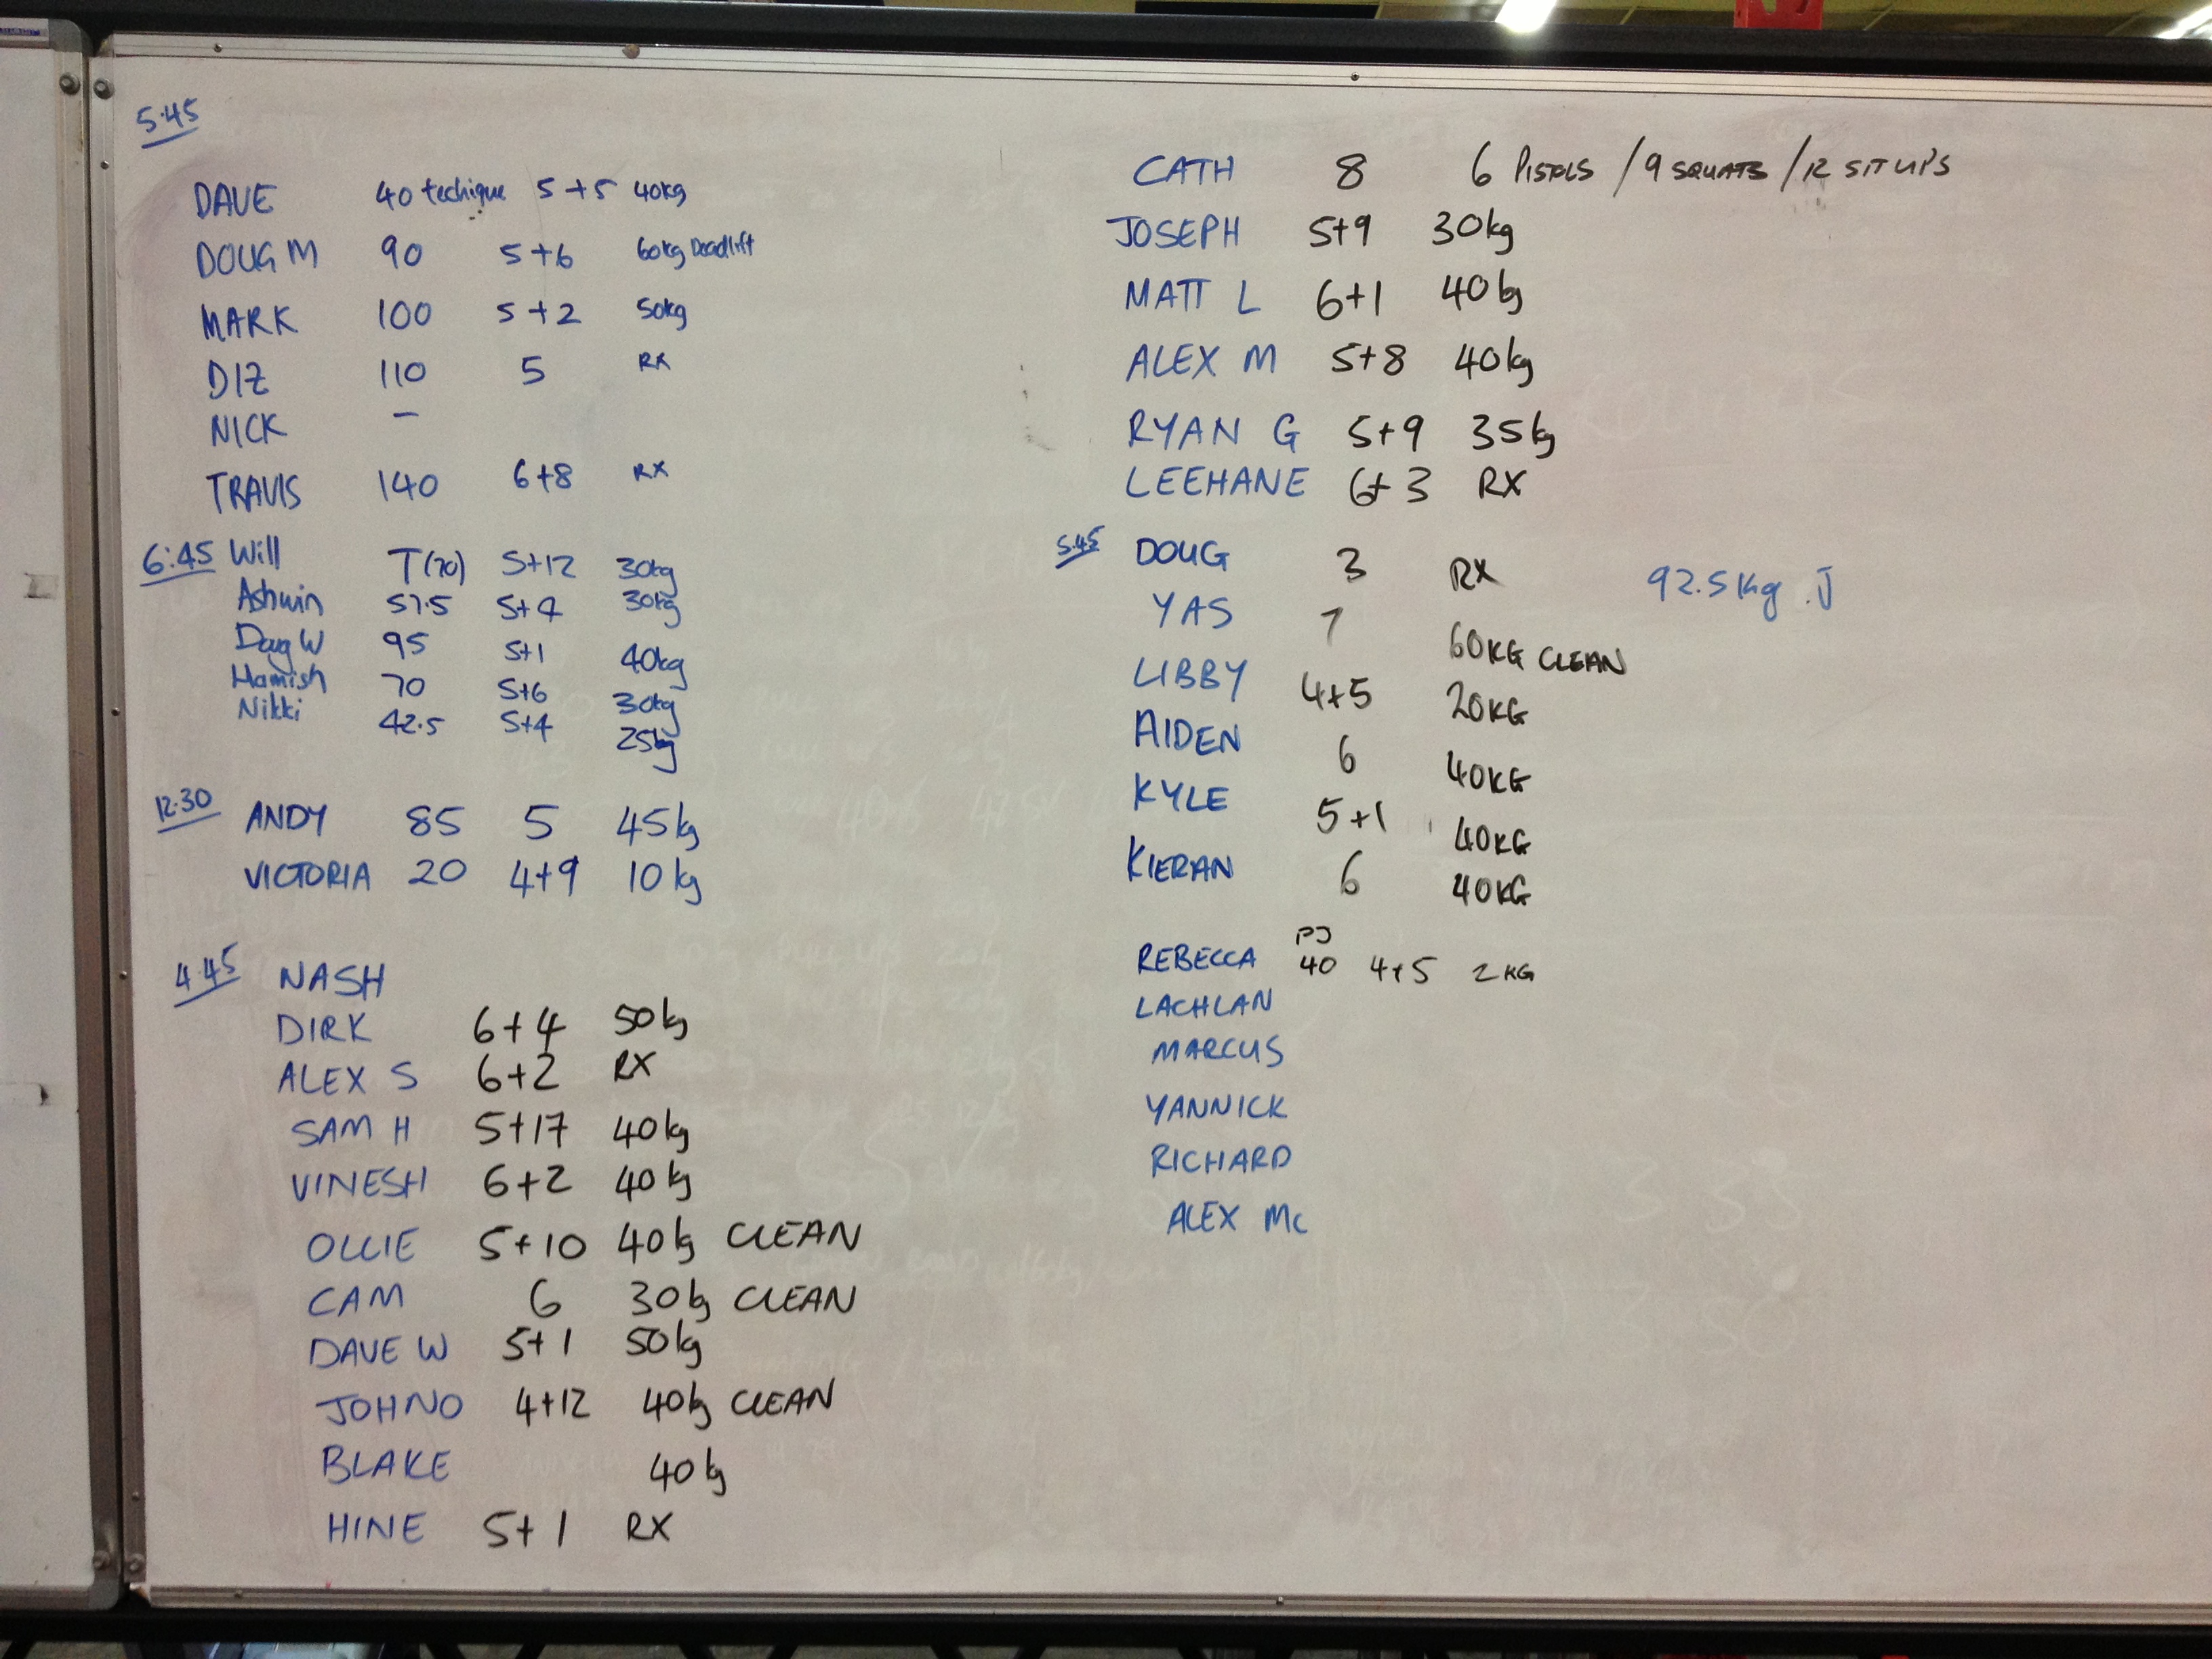 5:45
DAVE 40 techique 5+5 40kg
DOUG M 90 5+6 60kg Deadlift
MARK 100 5+2 50kg
DIZ 110 5 RX
NICK –
TRAVIS 140 6+8 RX
6:45 Will T(70) 5+12 30kg
Ashwin 57.5 5+4 30kg
Doug W 95 5+1 40kg
Hamish 70 5+6 30kg
Nikki 42.5 5+4 25kg
12.30 ANDY 85 5 45kg
VICTORIA 20 4+9 10kg
4.45 NASH
DIRK 6+4 50kg
ALEX S 6+2 RX
SAM H 5+17 40kg
VINESH 6+2 40kg
OLLIE 5+10 40kg CLEAN
CAM 6 30kg CLEAN
DAVE W 5+1 50kg
JOHNO 4+12 40kg CLEAN
BLAKE 40kg
HINE 5+1 RX
CATH 8 6 PISTOLS / 9 SQUATS / 12 SIT UPS
JOSEPH 5+9 30kg
MATT L 6+1 40kg
ALEX M 5+8 40kg
RYAN G 5+9 35kg
LEEHANE 6+3 RX
5:45 DOUG 3 RX 92.5kg .J
YAS 7 60KG CLEAN
LIBBY 4+5 20KG
AIDEN 6 40KG
KYLE 5+1 40KG
KIERAN 6 40KG
PJ
REBECCA 40 4+5 2KG
LACHLAN
MARCUS
YANNICK
RICHARD
ALEX Mc